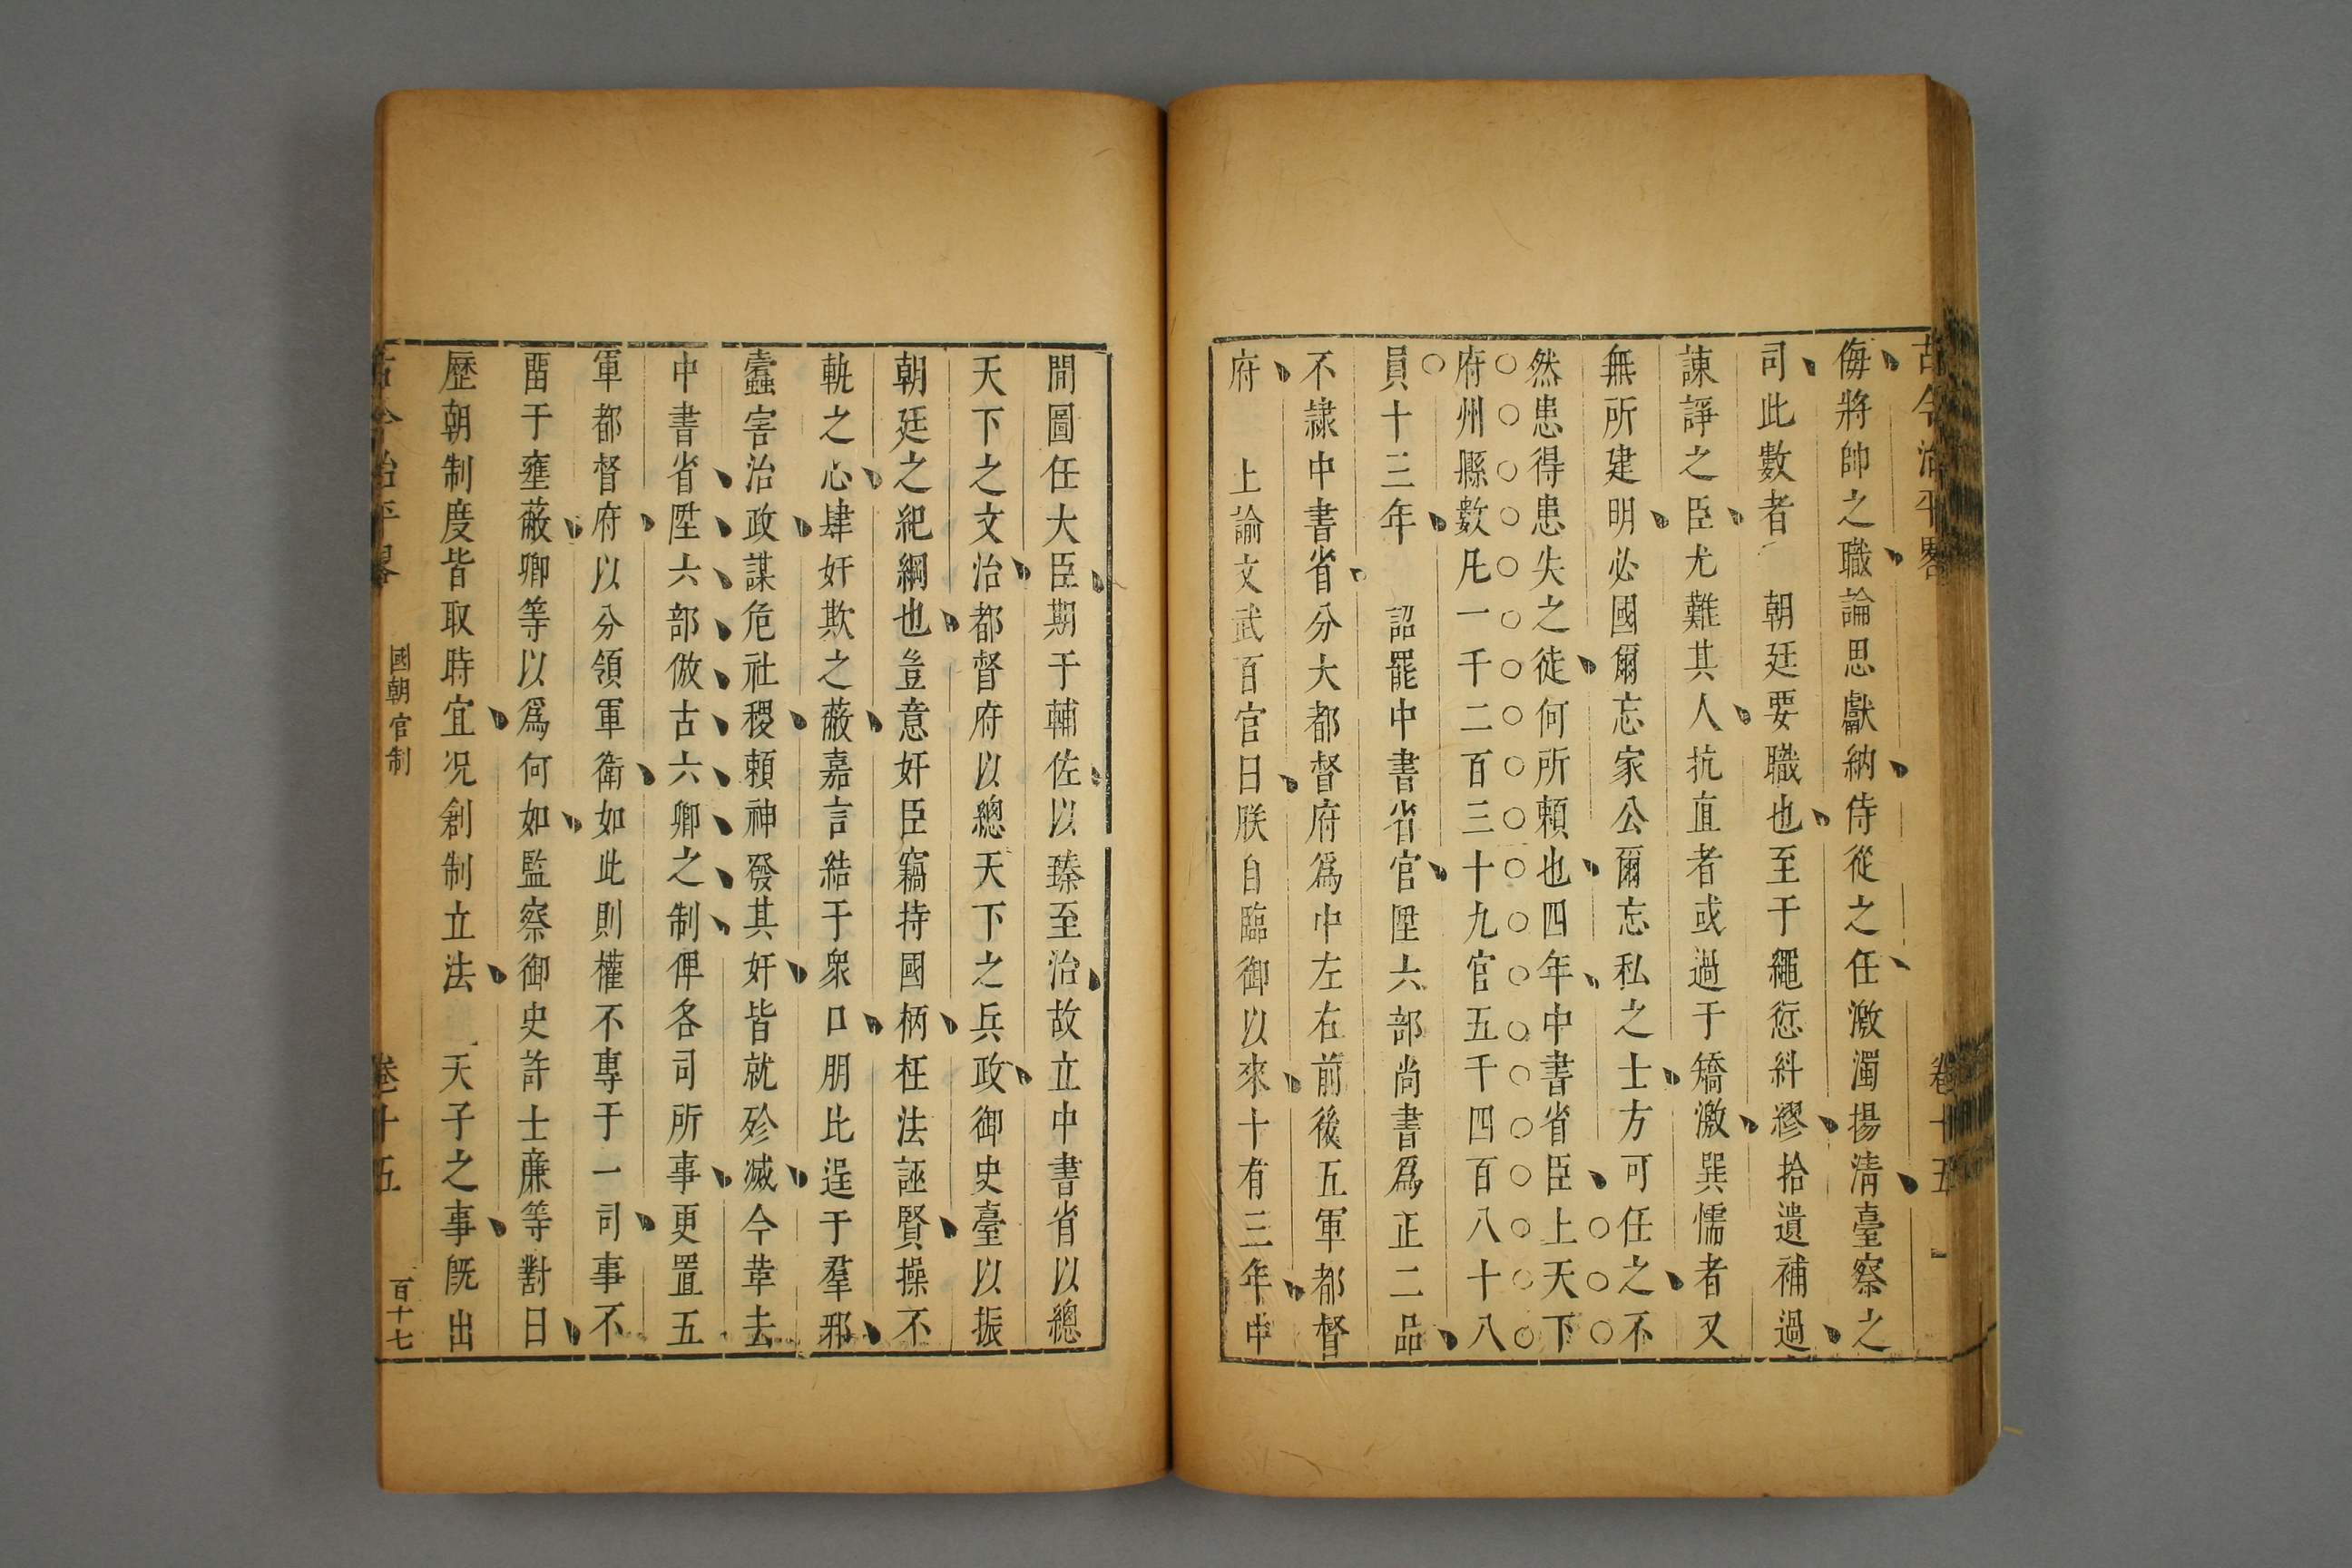 古今治平畧
卷十五
侮將帥之職論思獻納侍從之任激濁揚清臺察之
司此數者 朝廷要職也至于繩愆糾繆拾遺補過
諫諍之臣尤難其人抗直者或過于矯激巽懦者又
無所建明必國爾忘家公爾忘私之士方可任之不
然患得患失之徒何所賴也四年中書省臣上天下
府州縣數凡一千二百三十九官五千四百八十八
員十三年 詔罷中書省官陞六部尚書爲正二品
不隷中書省分大都督府爲中左右前後五軍都督
府 上諭文武百官曰朕自臨御以來十有三年中
間圖任大臣期于輔佐以臻至治故立中書省以總
天下之文治都督府以總天下之兵政御史臺以振
朝廷之紀綱也豈意奸臣竊持國柄枉法誣賢操不
軌之心肆奸欺之蔽嘉言結于衆口朋比逞于羣邪
蠹害治政謀危社稷賴神發其奸皆就殄滅今革去
中書省陞六部倣古六卿之制俾各司所事更置五
軍都督府以分領軍衛如此則權不專于一司事不
畱于壅蔽卿等以爲何如監察御史許士廉等對曰
歷朝制度皆取時宜况創制立法 天子之事旣出
古今治平畧
國朝官制
卷十五
百十七